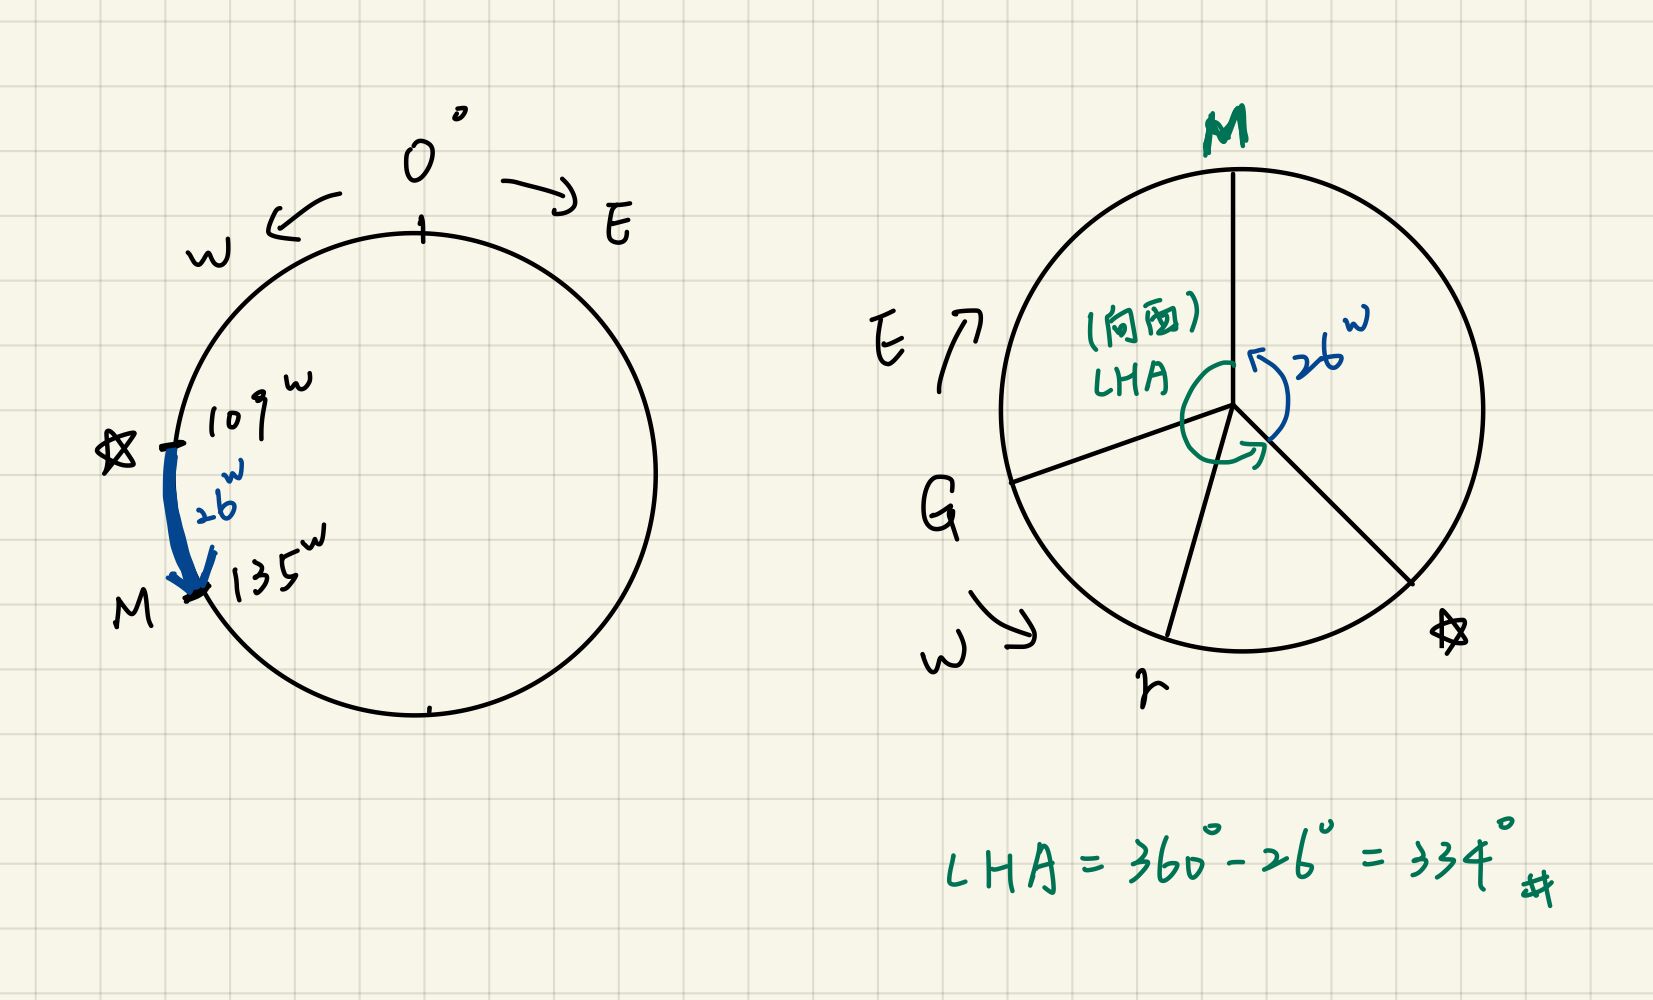 0°
W
E
109ᵂ
☆
26ᵂ
135ᵂ
M
M
(向西)
LHA
26ᵂ
E
G
W
r
☆
LHA = 360° - 26° = 334° #